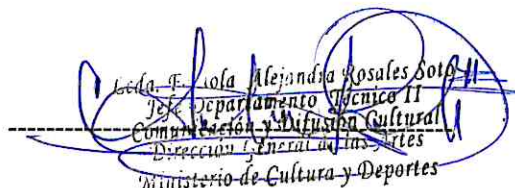 Lcda. Alejandra Rosales Soto
Jefe Departamento Técnico II
Comunicación y Difusión Cultural
Dirección General de las Artes
Ministerio de Cultura y Deportes